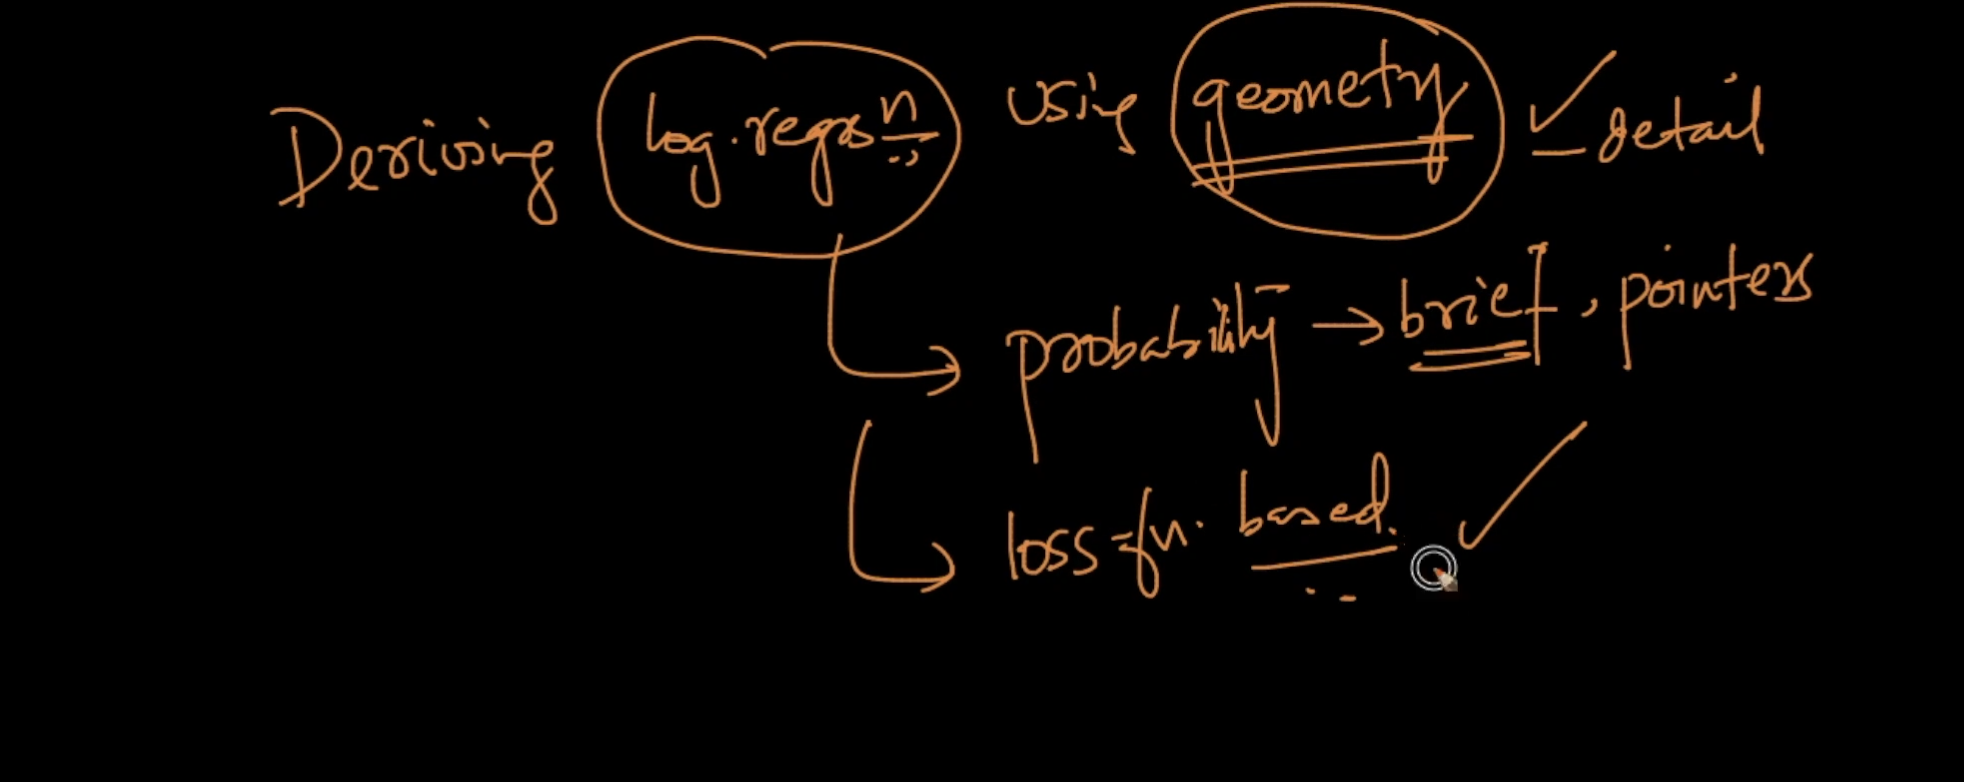 Deriving log.regrsn using geometry - detail
probability → brief, pointers
loss-fn. based.